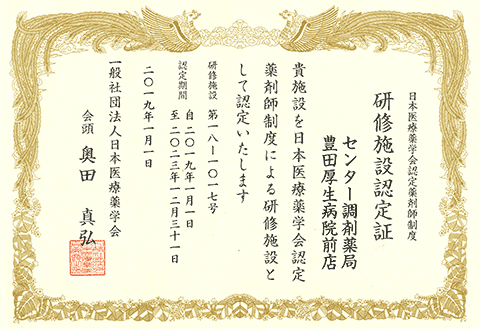 日本医療薬学会認定薬剤師制度
研修施設認定証
センター調剤薬局
豊田厚生病院前店
貴施設を日本医療薬学会認定
薬剤師制度による研修施設と
して認定いたします
研修施設 第一八-一〇一七号
認定期間 自 二〇一九年一月一日
至 二〇二三年一二月三十一日
二〇一九年一月一日
一般社団法人日本医療薬学会
会頭 奥田 真弘